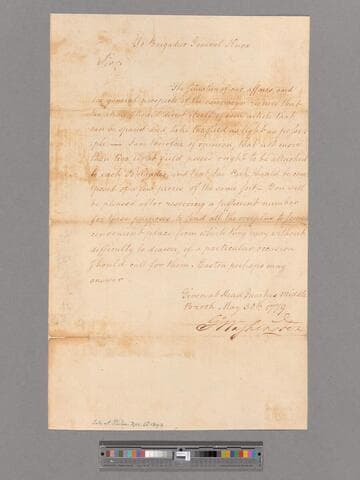 To Brigadier General Knox
Sir,
The situation of our affairs and
the general prospects of the campaign
we should divest ourselves of every article that
can be spared and take the field as light as pos
ple — I am therefore of opinion, that not more
than two light field pieces ought to be attached
to each Brigade, and that the Park should
of pieces of the same sort. You will
be pleased after reserving a sufficient number
for these purposes to send all the overplus to some
convenient place from which they may without
difficulty be drawn, if a particular occasion
should call for them. Easton perhaps may
answer
Given at Head Quarters Middle
Brook May 30th 1779
G Washington